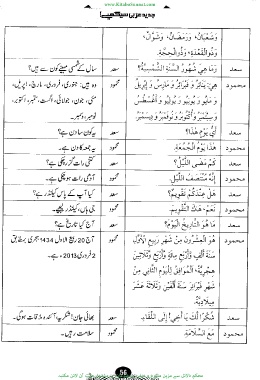 www.KitaboSunnat.com
جدید عربی سیکھیے!
وَشَعْبَانُ، وَرَمَضَانُ، وَشَوَّالُ،
وَذُوالْقَعْدَةِ، وَذُوالْحَجَّةِ.
سعد وَمَا هِيَ شُهُورُ السَّنَةِ الشَّمْسِيَّةِ؟ سعد سال کے شمسی مہینے کون سے ہیں؟
محمود هِيَ: يَنَايِرُ وَ فَبْرَايِرُ وَ مَارِسُ وَ إِبْرِيلُ محمود وہ ہیں: جنوری، فروری، مارچ، اپریل،
وَ مَايُو وَ يُونِيُو وَ يُولِيُو وَ أَغُسْطُسُ مئی، جون، جولائی، اگست، ستمبر، اکتوبر،
وَ سِبْتَمْبَرُ وَ أُكْتُوبَرُ وَ نُوفَمْبَرُ وَ دِيسَمْبَرُ. نومبر، دسمبر۔
سعد أَيُّ يَوْمٍ هَذَا؟ سعد یہ کون سا دن ہے؟
محمود هَذَا يَوْمُ الْجُمُعَةِ. محمود یہ جمعہ کا دن ہے۔
سعد كَمْ مَضَى اللَّيْلُ؟ سعد کتنی رات گزر چکی ہے؟
محمود إِنَّهُ مُنْتَصَفُ اللَّيْلِ. محمود آدھی رات ہو چکی ہے۔
سعد هَلْ عِنْدَكُمْ تَقْوِيمٌ؟ سعد کیا آپ کے پاس کیلنڈر ہے؟
محمود نَعَمْ، هَاكَ التَّقْوِيمَ. محمود جی ہاں، کیلنڈر لیجیے۔
سعد مَا هُوَ التَّارِيخُ الْيَوْمَ؟ سعد آج کیا تاریخ ہے؟
محمود هُوَ الْعِشْرُونَ مِنْ شَهْرِ رَبِيعِ الْأَوَّلِ محمود آج 20 ربیع الاول 1434 ہجری بمطابق
سَنَةَ أَلْفٍ وَأَرْبَعِ مِائَةٍ وَأَرْبَعٍ وَثَلَاثِينَ 2 فروری 2013ء ہے۔
هِجْرِيَّةً، الْمُوَافِقُ لِلْيَوْمِ الثَّانِي مِنْ
شَهْرِ فَبْرَايِرَ سَنَةَ أَلْفَيْنِ وَثَلَاثَةَ عَشَرَ
مِيلَادِيَّةً.
سعد شُكْرًا لَكَ يَا أَخِي! إِلَى اللِّقَاءِ. سعد بھائی جان! شکریہ آئندہ ملاقات ہوگی۔
محمود مَعَ السَّلَامَةِ. محمود سلامت رہیں۔
56